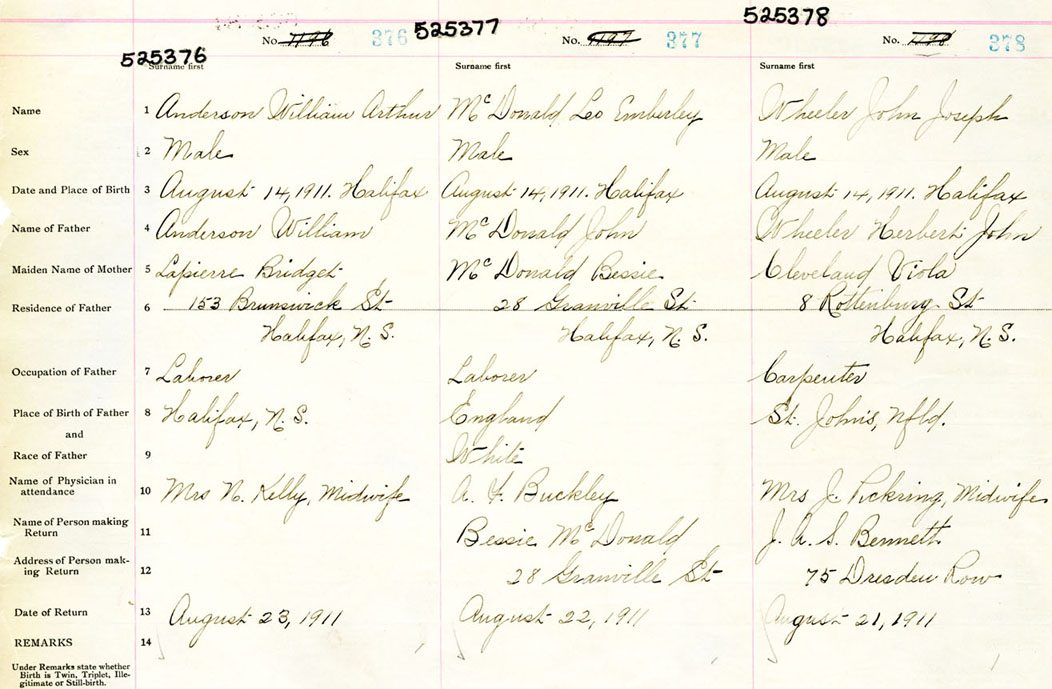 525376 525377 525378
No. 1196 376 No. 1197 377 No. 1198 378
Surname first Surname first Surname first
Name 1 Anderson William Arthur McDonald Leo Emberley Wheeler John Joseph
Sex 2 Male Male Male
Date and Place of Birth 3 August 14, 1911. Halifax August 14, 1911. Halifax August 14, 1911. Halifax
Name of Father 4 Anderson William McDonald John Wheeler Herbert John
Maiden Name of Mother 5 Lapierre Bridget McDonald Bessie Cleveland Viola
Residence of Father 6 153 Brunswick St 28 Granville St 8 Rottenburg St
Halifax, N.S. Halifax, N.S. Halifax, N.S.
Occupation of Father 7 Laborer Laborer Carpenter
Place of Birth of Father 8 Halifax, N.S. England St. John's, Nfld.
and
Race of Father 9 White
Name of Physician in
attendance 10 Mrs N. Kelly, Midwife A. F. Buckley Mrs J. Pickring, Midwife
Name of Person making
Return 11 Bessie McDonald J. A. S. Bennett
Address of Person mak-
ing Return 12 28 Granville St 75 Dresden Row
Date of Return 13 August 23, 1911 August 22, 1911 August 21, 1911
REMARKS 14
Under Remarks state whether
Birth is Twin, Triplet, Ille-
gitimate or Still-birth.